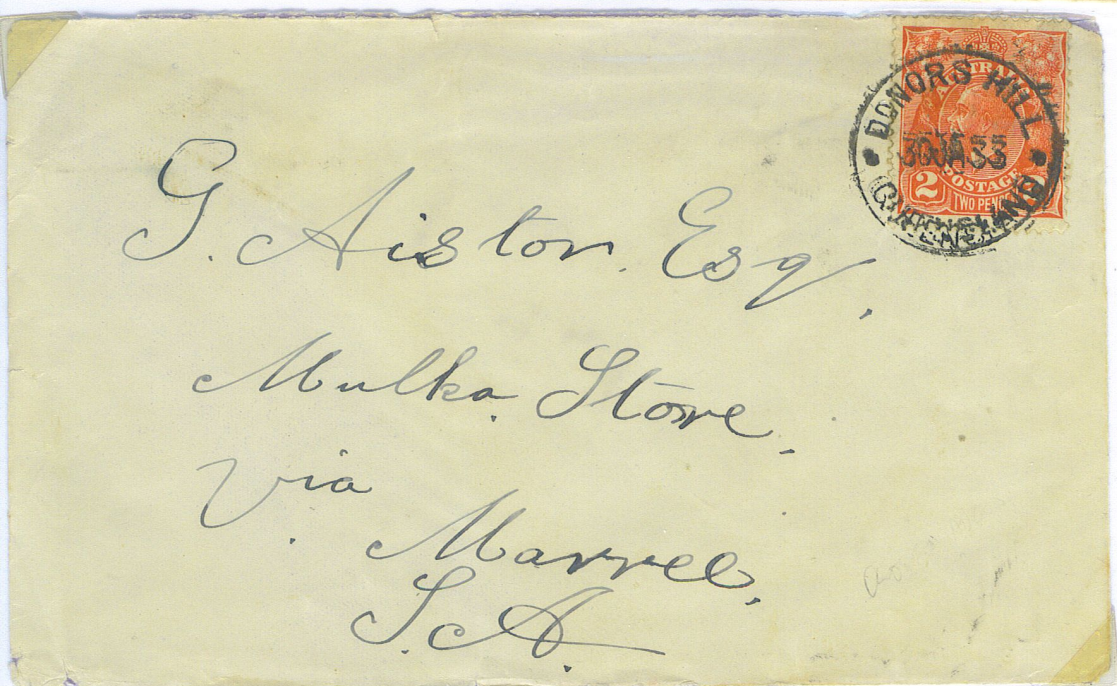 AUSTRALIA
DONORS HILL
30 JA 33
QUEENSLAND
2
POSTAGE
TWO PEN
G. Aiston. Esq,
Mulka. Store.
Via.
Marree,
S.A.